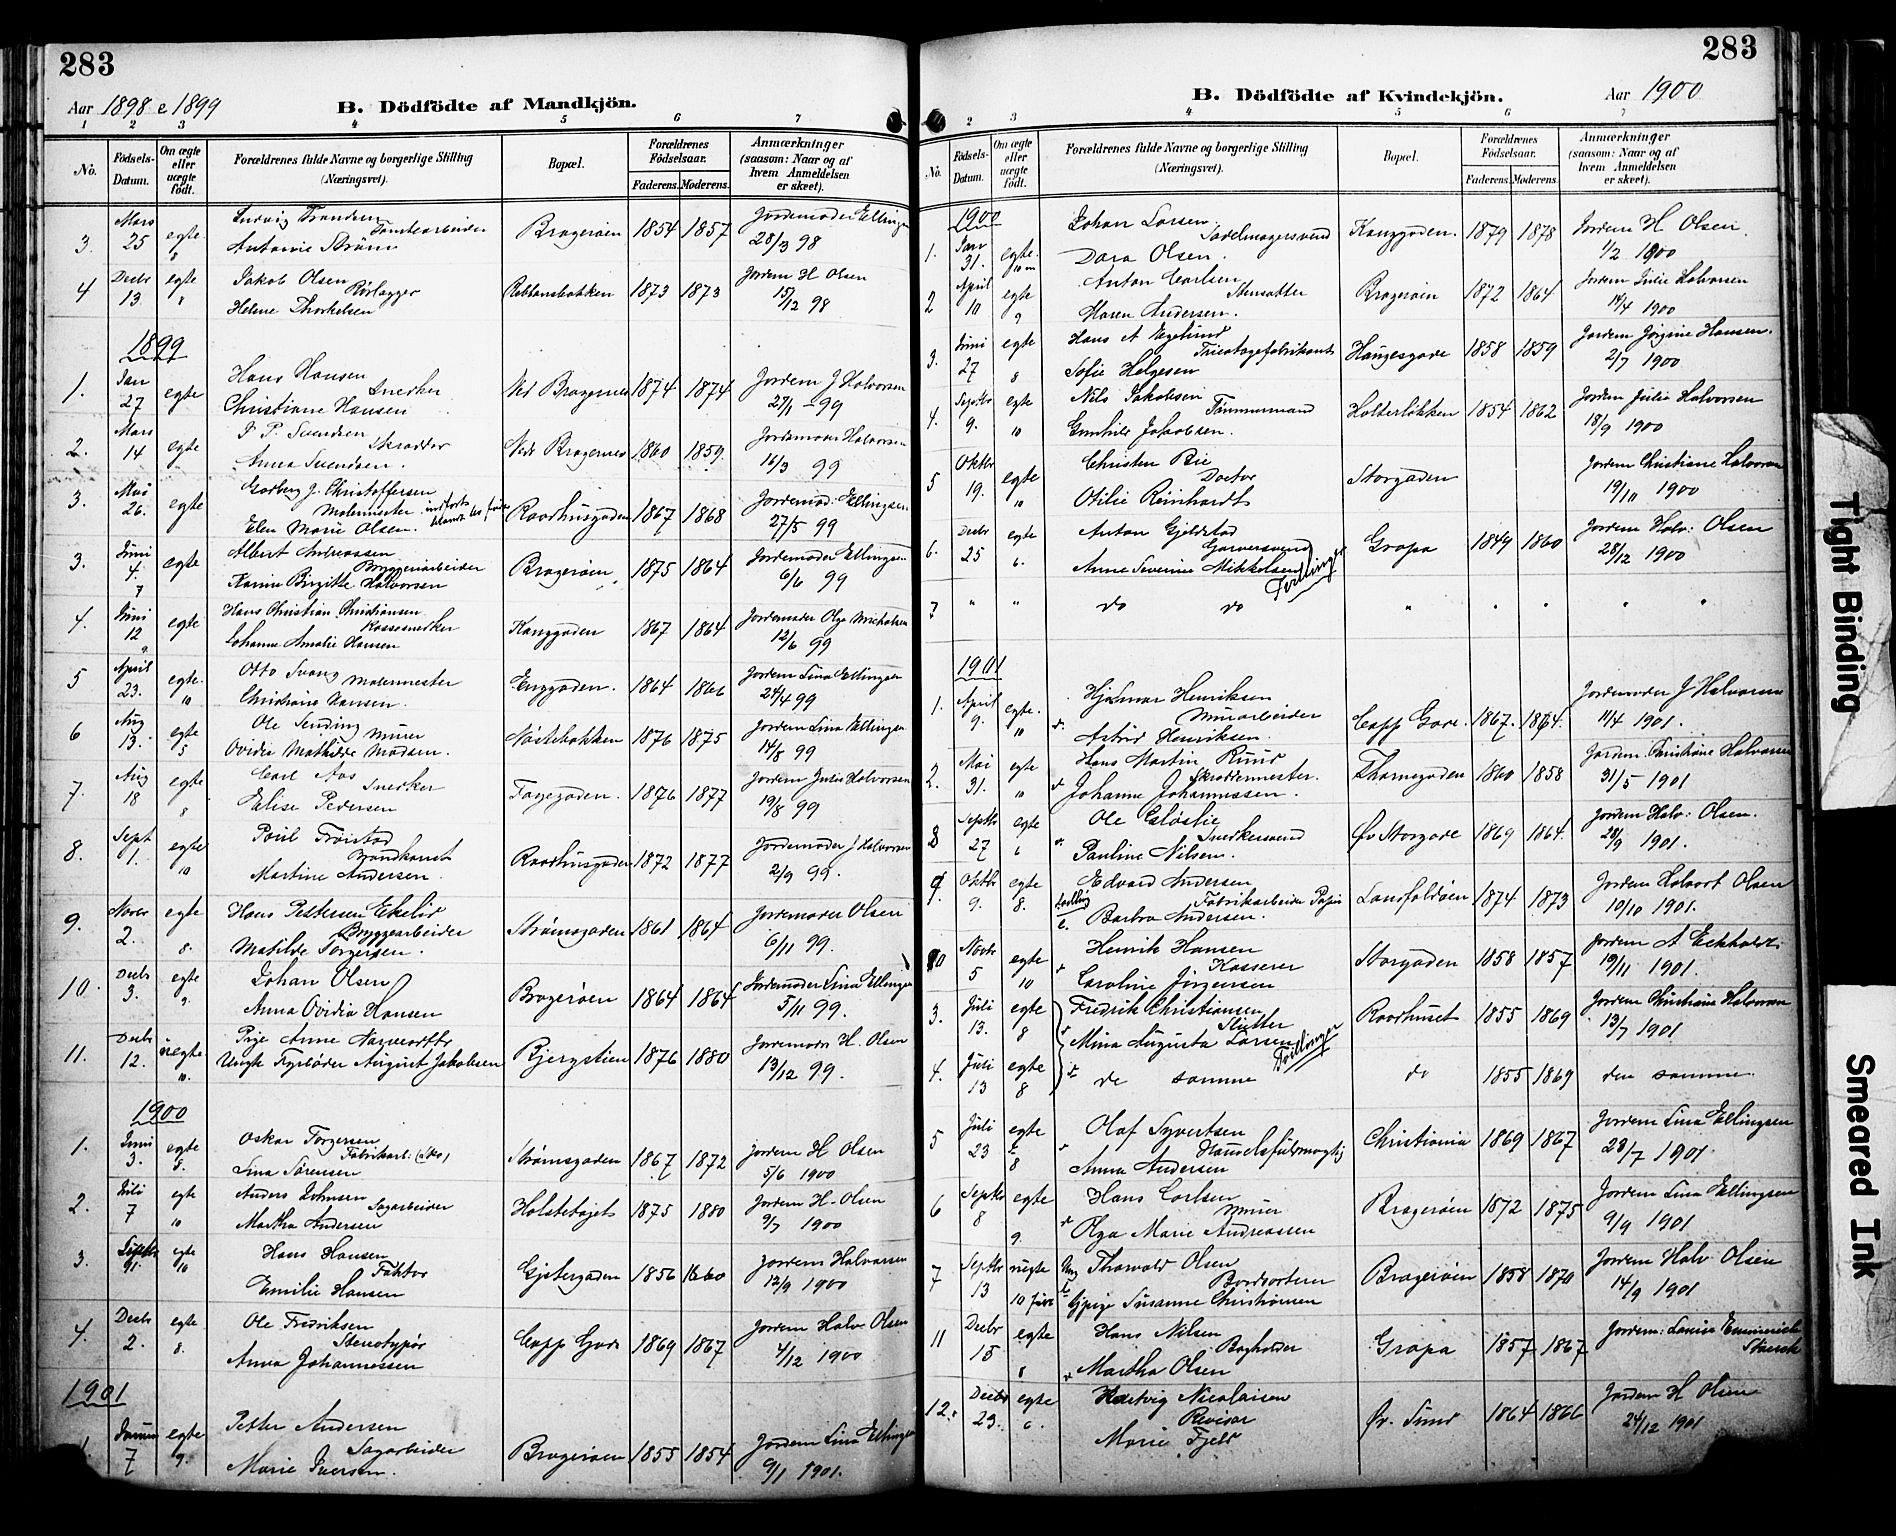 283
Aar 1898 & 1899
B. Dödfödte af Mandkjön.
1 2 3 4 5 6 7
No. Födsels-Datum. Om ægte eller uægte födt. Forældrenes fulde Navne og borgerlige Stilling (Næringsvei). Bopæl. Forældrenes Födselsaar. Faderens. Moderens. Anmærkninger (saasom: Naar og af hvem Anmeldelsen er skeet).
3. Mars 25 egte 8 Ludvig Tomtearbeider Antonie Brageröen 1854 1857 Jordemoder Ellingsen 28/3 98
4 Decbr 13 egte 8 Jakob Olsen Rörlægger Helene Thorkelsen 1873 1873 Jordem H Olsen 15/12 98
1899
1. Jan 27 egte Hans Hansen Snedker Christiane Hansen Ned Bragernes 1874 1874 Jordem J Halvorsen 27/1 - 99
2. Mars 14 egte P. Svendsen Skrædder Anna Svendsen. Nedr Bragernes 1860 1859. Jordemoder Halvorsen 16/3 99
3. Mai 26. egte J. Christoffersen Malermester Elen Marie Olsen. Raadhusgaden 1867 1868 Jordemod. Ellingsen 27/5 99
3. Juni 4. 7 egte Albert Andreassen Bryggeriarbeider Karine Birgitte Halvorsen Brageröen 1875 1864 Jordemoder Ellingsen 6/6 99
4. Juni 12 9. egte Hans Christian Christiansen Kassesnedker Johanne Amalie Hansen Kanggaden 1867 1864 Jordemoder Olga Micholsen 12/6 99
5 April 23. egte. 10 Otto Svang Malermester Christiane Hansen. Enggaden. 1864 1866 Jordem Lina Ellingsen 24/4 99
6 Aug 13. egte 5 Ole Sending Murer Ovidia Mathilde Madsen. Nöstebakken 1876 1875 Jordem Lina Ellingsen 14/8 99
7. Aug 18 egte 8 Carl Aas Snedker Elise Pedersen Tagegaden. 1876 1877 Jordem Julie Halvorsen 19/8 99
8. Sept 1. egte 10 Poul Martine Andersen. Raadhusgaden 1872 1877 Jordemoder J Halvorsen 2/9 99.
9. Novbr 2. egte 8. Hans Pettersen Ekelid Bryggearbeider Matilde Torgersen. Strömsgaden 1861 1864 Jordemoder Olsen 6/11 99.
10. Decbr 3. egte 9. Johan Olsen Anna Ovidia Hansen Brageröen 1864 1864 Jordemoder Lina Ellingsen 5/11 99.
11. Decbr 12. uegte 10. Pige Anne Ungk Fyrböder August Jakobsen Bjergstien 1876 1880 Jordemoder H. Olsen 13/12 99.
1900
1. Juni 3. egte 8. Oskar Torgersen Fabrikarb. (Sko) Lina Sörensen Strömsgaden 1867 1872 Jordem H Olsen 5/6 1900
2. Juli 7 egte 10 Anders Johnsen Sagarbeider Martha Andersen 1875 1880 Jordem H. Olsen 9/7 1900
3. egte 10 Hans Hansen Faktor Emilie Hansen Gjetergaden 1856 1860 Jordem Halvorsen 12/9 1900
4. Decbr 2. egte 8. Ole Fredriksen Stereotypör Anna Johannessen Capp Gade 1869 1867 Jordem Halv Olsen 4/12 1900
1901
1 Januar 7 egte 9. Petter Andersen Sagarbeider Marie Iversen. Brageröen 1855 1854 Jordem Lina Ellingsen 9/1 1901.
283
B. Dödfödte af Kvindekjön.
Aar 1900
2 3 4 5 6 7
No. Födsels-Datum. Om ægte eller uægte födt. Forældrenes fulde Navne og borgerlige Stilling (Næringsvei). Bopæl. Forældrenes Födselsaar. Faderens. Moderens. Anmærkninger (saasom: Naar og af hvem Anmeldelsen er skeet).
1900
1. Jan 31. egte. 10 m Johan Larsen Sadelmagersvend Dora Olsen. Kanggaden. 1879 1878 Jordem H Olsen. 1/2 1900
2 April 10 egte 9 Anton Carlsen Stensætter Maren Andersen. Brageröen 1872 1864 Jordem Julie Halvorsen 14/4 1900
3. Juni 27 egte 8 Hans A Engelund Tricotagefabrikant Sofie Helgesen Haugesgade 1858 1859 Jordem Jörgine Hansen. 2/7 1900
4. Septbr 9. egte 10 Nils Jakobsen Tömmermand Gunhild Jakobsen. Holterlökken 1854 1862 Jordem Julie Halvorsen 18/9 1900
5 Oktbr 19. egte 10 Christen Bie Doctor Otilie Reinhardt Storgaden Jordem Christiane Halvorsen 19/10 1900
6. Decbr 25 egte 6. Anton Gjeldstad Garversvend Anne Severine Mikkelsen Tvillinger Gropa 1849 1860 Jordem Halv: Olsen 28/12 1900
7 " " do do " " " " "
1901
1. April 9. egte. 10 Hjalmar Henriksen Murarbeider Astrid Henriksen. Capp Gade. 1867. 1864. Jordemoder J Halvorsen 11/4 1901.
2. Mai 31. egte 10 Hans Martin Ruud Skræddermester. Johanne Johannessen. Thornegaden 1860 1858 Jordem. Christiane Halvorsen 31/5 1901
8 Septbr 27 egte 6 Ole Snedkersvend Pauline Nilsen. Öv Storgade 1869 1864. Jordem Halv: Olsen. 28/9 1901.
9. Oktbr 9. egte 8. Edvard Andersen Fabrikarbeider Papir Barbra Andersen. Landfaldöen 1874 1873 Jordem Halvort Olsen 10/10 1901.
10 Novbr 5 egte 10 Henrik Hansen Kasserer Caroline Jörgensen Storgaden 1858 1857 Jordem A Eckholdt 19/11 1901.
3. Juli 13. egte 8 Fredrik Christiansen Slutter Mina Augusta Larsen Tvillinger Raadhuset 1855 1869 Jordem Christiane Halvorsen 13/7 1901
4. Juli 13 egte 8 de samme do 1855 1869 den samme
5 Juli 23 egte 8 Olaf Syvertsen Handelsfuldmægtig Anna Andersen Christiania 1869 1867 Jordem Lina Ellingsen 23/7 1901
6 Septbr 8 egte 9. Hans Carlsen Murer Olga Marie Andreassen Brageröen 1872 1875 Jordem Lina Ellingsen 9/9 1901
7 Septbr 13 uegte 10 Ung Thorvald Olsen Bordsorterer Pige Susanne Christiansen Brageröen 1858 1870 Jordem Halv Olsen 14/9 1901
11 Decbr 15 egte 8 Hans Nilsen Bogholder Martha Olsen Gropa 1857 1867 Jordem: Lovise Emmerick
12. Decbr 23. egte 6. Hartvig Nicolaisen Revisor Marie Fjeld Öv. Sund 1864 1866 Jordem H Olsen 24/12 1901
Tight Binding
Smeared Ink